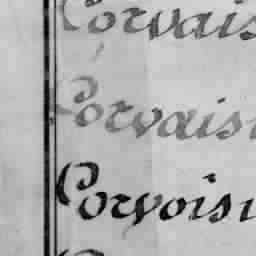 Corvais
Corvaisi
Corvoisi